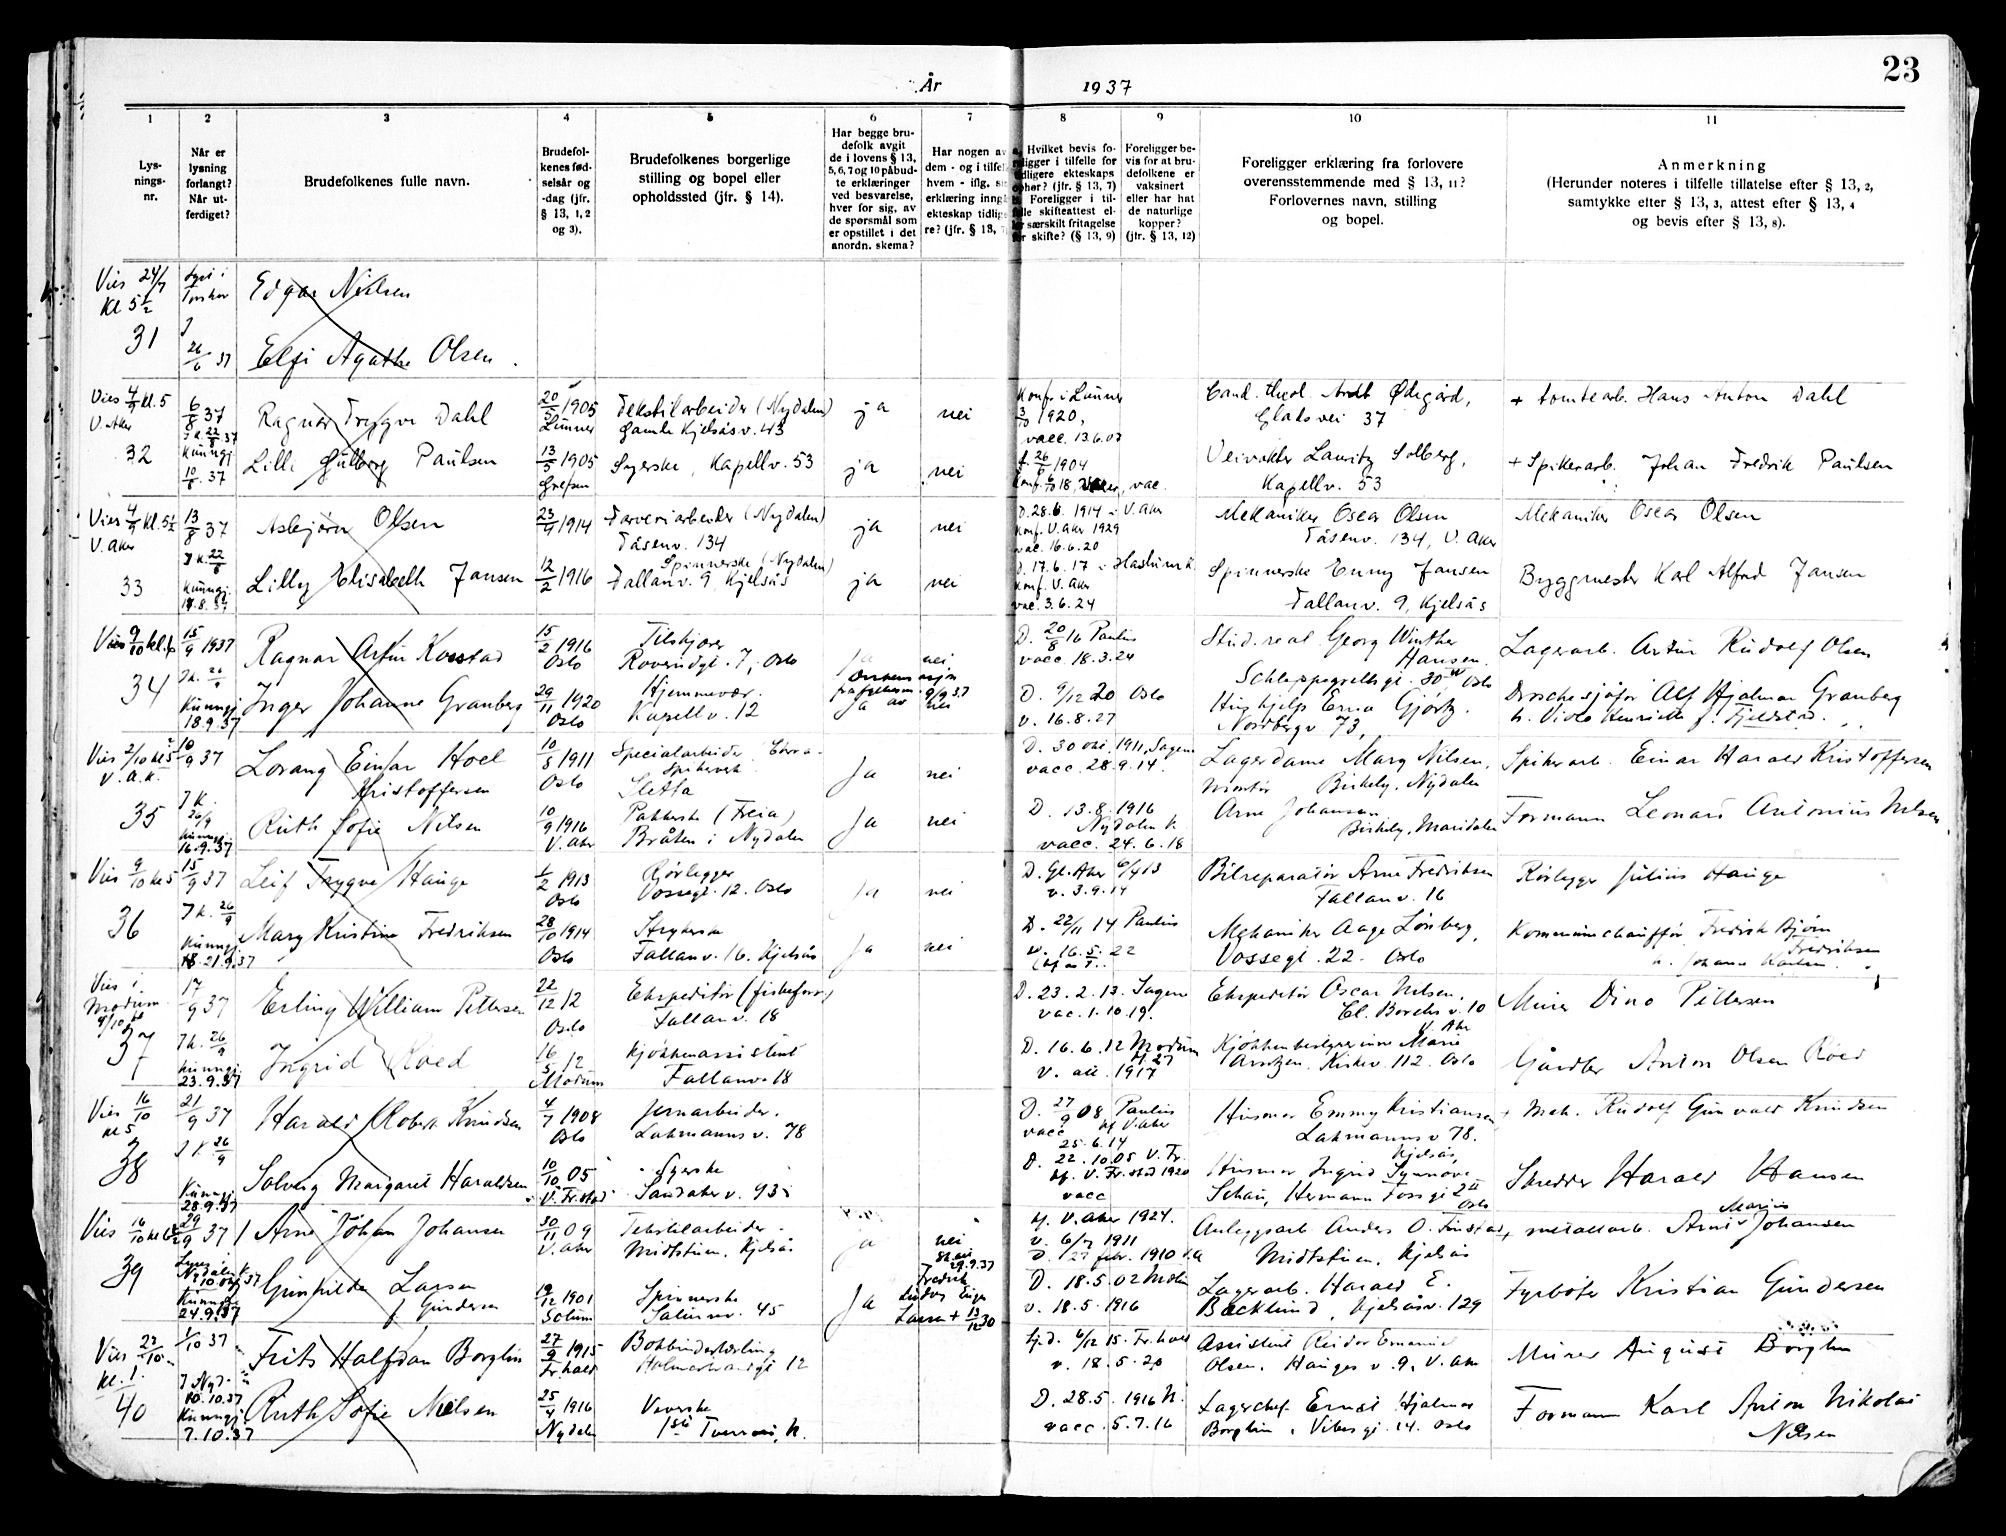 23
År 1937
1 2 3 4 5 6 7 8 9 10 11
Lys-
nings-
nr.
Når er
lysning
forlangt?
Når ut-
ferdiget?
Brudefolkenes fulle navn.
Brudefol-
kenes fød-
selsår og
-dag (jfr.
§ 13, 1, 2
og 3).
Brudefolkenes borgerlige
stilling og bopel eller
opholdssted (jfr. § 14).
Har begge bru-
defolk avgit
de i lovens § 13,
5, 6, 7 og 10 påbud-
te erklæringer
ved besvarelse,
hver for sig, av
de spørsmål som
er opstillet i det
anordn. skema?
Har nogen av
dem - og i tilfel
hvem - iflg. s
erklæring inng
ekteskap tidlig
re? (jfr. § 13,
Hvilket bevis fo-
religger i tilfelle for
tidligere ekteskaps
ophør? (jfr. § 13, 7)
Foreligger i til-
felle skifteattest el-
ler særskilt fritagelse
for skifte? (§ 13, 9)
Foreligger be-
vis for at bru-
defolkene er
vaksinert
eller har hat
de naturlige
kopper?
(jfr. § 13, 12)
Foreligger erklæring fra forlovere
overensstemmende med § 13, 11?
Forlovernes navn, stilling
og bopel.
Anmerkning
(Herunder noteres i tilfelle tillatelse efter § 13, 2,
samtykke efter § 13, 3, attest efter § 13, 4
og bevis efter § 13, 8).
Vies 24/7
Kl 5 1/2
Edgar Nielsen
31
26/6 37
Elfi Agathe Olsen.
Vies 4/9 kl. 5
V. Aker
6/8 37
Ragnar Trygve Dahl
20/5 1905
Lunner
Tekstilarbeider (Nydalen)
Gamle Kjelsåsv. 43
ja
nei
Konf. i Lunner
1920,
vacc. 13.6.07
Cand. theol. Arndt Ødegård,
Gladsvei 37
+ tomtearb. Hans Anton Dahl
32
Kunngj.
10/8 37
Lilli Gulborg Paulsen
13/5 1905
Grefsen
Syerske, Kapellv. 53
ja
nei
f. 26/6 1904
vac.
Veivokter Lauritz Solberg,
Kapellv. 53
+ Spikerarb. Johan Fredrik Paulsen
Vies 4/9 kl. 5 1/2
V. Aker
13/8 37
Asbjørn Olsen
23/4 1914
Farveriarbeider (Nydalen)
Tåsenv. 134
ja
nei
D. 28.6. 1914 - V. Aker
Konf. V. Aker 1929
vac. 16.6.20
Mekaniker Oscar Olsen
Tåsenv. 134, V. Aker
Mekaniker Oscar Olsen
33
I k. 22/8
Kunngj.
17.8.37
Lilly Elisabeth Jansen
12/2 1916
Spinnerske (Nydalen)
Fallanv. 9, Kjelsås
ja
nei
D. 17.6.17 - Haslum k.
Konf. V. Aker
vac. 3.6.24
Spinnerske Enny Jansen
Fallanv. 9, Kjelsås
Byggmester Karl Alfred Jansen
Vies 9/10 kl. 6
15/9 1937
Ragnar Artur Korstad
15/2 1916
Oslo
Tilskjærer
Roverudgt. 7, Oslo
Ja
nei
D. 20/8 16 Paulus
vacc. 18.3.24
Stud. real Georg Winther
Hansen.
Schleppegrellsgt. 30 Oslo
Lagerarb. Artur Rudolf Olsen
34
I k. 26/9
Kunngj.
18.9.37
Inger Johanne Granberg
29/11 1920
Oslo
Hjemmevær.
Kapellv. 12
9/9 37
Ja
nei
D. 9/12 20 Oslo
v. 16.8.27
Hushjelp Erna Gjørtz.
Nordbergv 73,
Droschesjåfør Alf Hjalmar Granberg
h. Viola Henriette f. Fjeldstad.
Vies 2/10 kl 5
V. A. K.
10/9 37
Lorang Einar Hoel
Kristoffersen
10/8 1911
Oslo
Specialarbeider
Spikerverk
Sletta
Ja
nei
D. 30 okt. 1911, Sagene
vacc. 28.9.14.
Lagerdame Mary Nilsen,
Birkely, Nydalen
Spikerarb. Einar Harald Kristoffersen
35
I k.
26/9
Kunngj.
16.9.37
Ruth Sofie Nilsen
10/9 1916
V. Aker
Pakkerske (Freia)
Bråten i Nydalen
Ja
nei
D. 13.8.1916
Nydalen k
vacc. 24.6.18
Montør Arne Johansen
Birkely, Maridalen
Formann Leonard Antonius Nilsen
Vies 9/10 kl 5
15/9 37
Leif Trygve Hauge
1/2 1913
Oslo
Rørlegger
Vossegt. 12. Oslo
Ja
nei
D. Gl. Aker 6/4 13
v. 3.9.14
Bilreparatør Arne Fredriksen
Fallanv. 16
Rørlegger Julius Hauge
36
I k. 26/9
Kunngj.
21.9.37
Mary Kristine Fredriksen
28/10 1914
Oslo
Strykerske
Fallanv. 16. Kjelsås
Ja
nei
D. 22/11 14 Paulus
v. 16.5.22
Mekaniker Aage Lønberg,
Vossegt. 22. Oslo
Kommunechauffør Fredrik Bjørn
Fredriksen
h. Johanne Karlsen.
Vies i
Modum
9/10 kl
17/9 37
Erling William Pettersen
22/12 12
Oslo
Ekspeditør (fiskeforr.)
Fallanv. 18
D. 23.2.13. Sagene
vac. 1.10.19.
Ekspeditør Oscar Nilsen,
Cl. Borchs v. 10
V. Aker
Murer Dino Pettersen
37
I k. 26/9
Kunngj.
23.9.37
Ingrid Roed
16/5 12
Modum
Kjøkkenassistent
Fallanv. 18
D. 16.6.12 Modum
kf 27
V. att. 1917
Kjøkkenbestyrerinne Marie
Arntzen, Kirkev. 112. Oslo
Gårdbr Anton Olsen Røed
Vies 16/10
kl 5
21/9 37
Harald Robert Knudsen
4/7 1908
Oslo
Jernarbeider.
Lakmanns v. 78
D. 27/9 08 Paulus
kf V. Aker
vacc
25.6.14
Husmor Emmy Kristiansen,
Lakmanns v 78.
Kjelsås,
+ Mek. Rudolf Gunvald Knudsen
38
I k. 26/9
Kunngj.
28.9.37
Solveig Margaret Haraldsen
10/10 05
V. Fr.stad
Syerske
Sandaker v. 93
D. 22.10.05 V. Fr.
kf. V. Fr.stad 1920
vacc
Husmor Ingrid Synnøve
Schau, Hermann Fossgt 2 II
Oslo
Skredder Harald Hansen
Vies 16/10 kl 6
29/9 37
Arne Johan Johansen
30/11 09
V. Aker
Tekstilarbeider.
Midtstuen, Kjelsås
ja
nei
kf. V. Aker 1924.
v. 6/7 1911
D. 27 febr. 1910 V.A
Anleggsarb. Anders O. Finstad,
Midtstuen, Kjelsås
+ metallarb. Arne Marius Johansen
39
Nydalen k.
10. okt 37
Kunngj.
24.9.37
Gunhilda Larsen
f Gundersen
19/12 1901
Solum
Spinnerske
Solunv. 45
Ja
29.9.37
Fredrik
Ludvig
Larsen + 13/12 30
D. 18.5.02 Molin
v. 18.5.1916
Lagerarb. Harald E.
Backlund, Kjelsåsv. 129
Fyrbøter Kristian Gundersen
Vies 23/10
kl. 1.
1/10 37
Frits Halfdan Borglin
27/9 1915
Fr.hald
Bokbinderlærling
12
kf. d. 6/12 15. Fr.hald
v. 18.5.20
Assistent Reidar Ermanuel
Olsen. Hauges v. 9, V. Aker
Murer August Borglin
40
I Nyd.
10.10.37
Kunngj.
7.10.37
Ruth Sofie Nielsen
25/4 1916
Nydalen
Veverske
1ste Tverrvei, N.
D. 28.5.1916 N.
vacc. 5.7.16
Lagerchef Ernst Hjalmar
Borglin, Vibesgt. 14. Oslo
Formann Karl Anton Nikolai
Nilsen